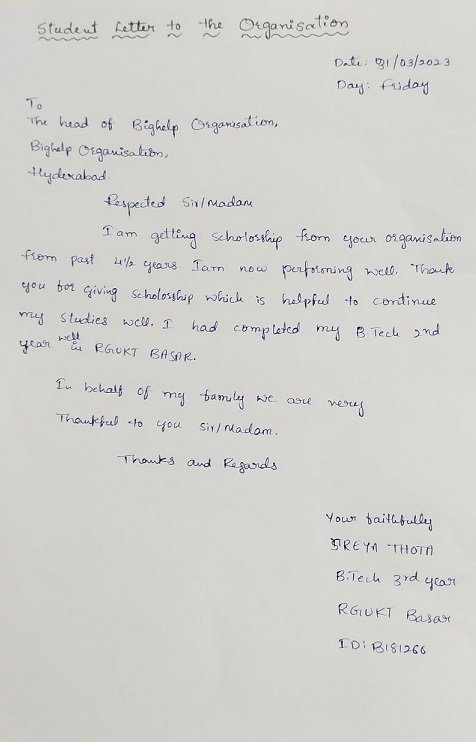 Student Letter to the Organisation
Date: 31/03/2023
Day: Friday
To
The head of Bighelp Organisation,
Bighelp Organisation,
Hyderabad.
Respected Sir/Madam
I am getting Scholosship from your organisation
from past 4½ years. I am now performing well. Thank
you for giving scholosship which is helpful to continue
my studies well. I had completed my B.Tech 2nd
year well in RGUKT BASAR.
In behalf of my family we are very
Thankful to you Sir/Madam.
Thanks and Regards
Your faithfully
SREYA THOTA
B.Tech 3rd year
RGUKT Basar
ID: B181266